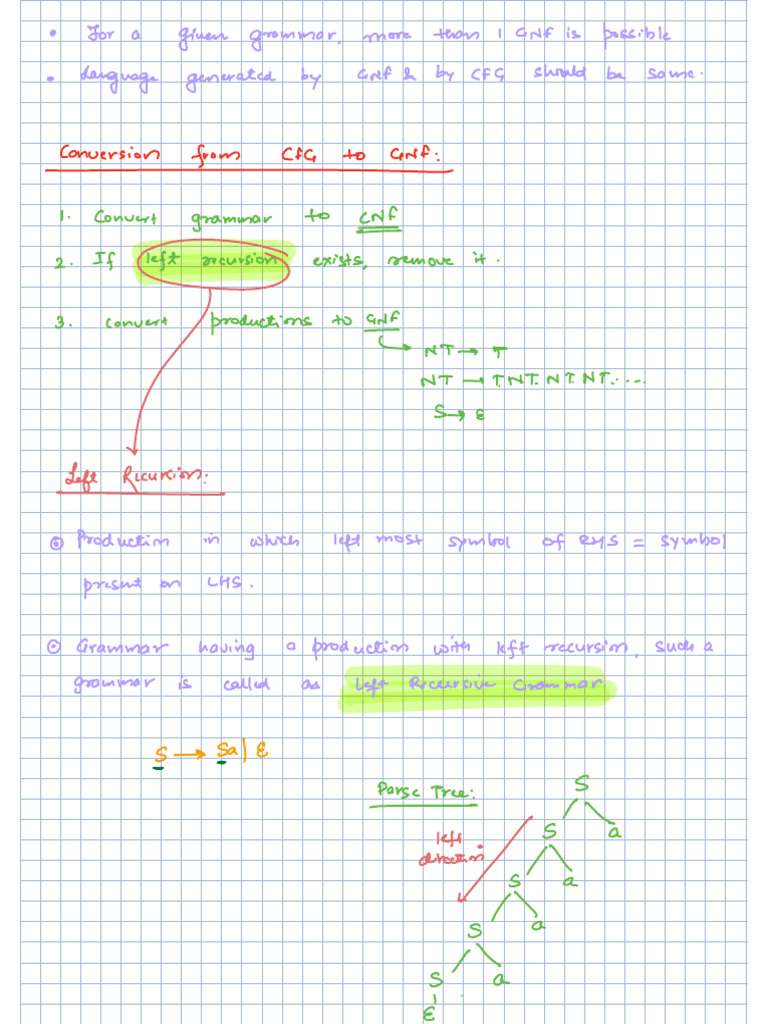 • For a given grammar, more than 1 GNF is possible
• Language generated by GNF & by CFG should be same.
Conversion from CFG to GNF:
1. Convert grammar to CNF
2. If left recursion exists, remove it.
3. Convert productions to GNF
NT → T
NT → T.NT.NT.NT.....
S → ε
Left Recursion:
⊙ Production in which left most symbol of RHS = symbol
present on LHS.
⊙ Grammar having a production with left recursion, such a
grammar is called as left Recursive Grammar
S → Sa | ε
Parse Tree:
S
S a
left
direction
S a
S a
S a
ε